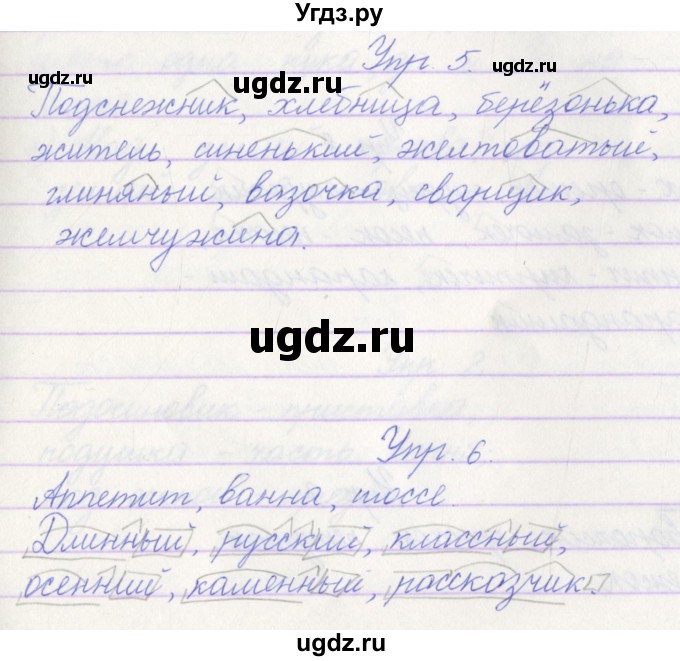 Угдз.ру
Упр. 5.
ugdz.ru ugdz.ru ugdz.ru
Подснежник, хлебница, берёзонька,
житель, синенький, желтоватый,
глиняный, вазочка, сварщик,
жемчужина.
ugdz.ru
Упр. 6.
Аппетит, ванна, шоссе.
Длинный, русский, классный,
осенний, каменный, рассказчик.
ugdz.ru